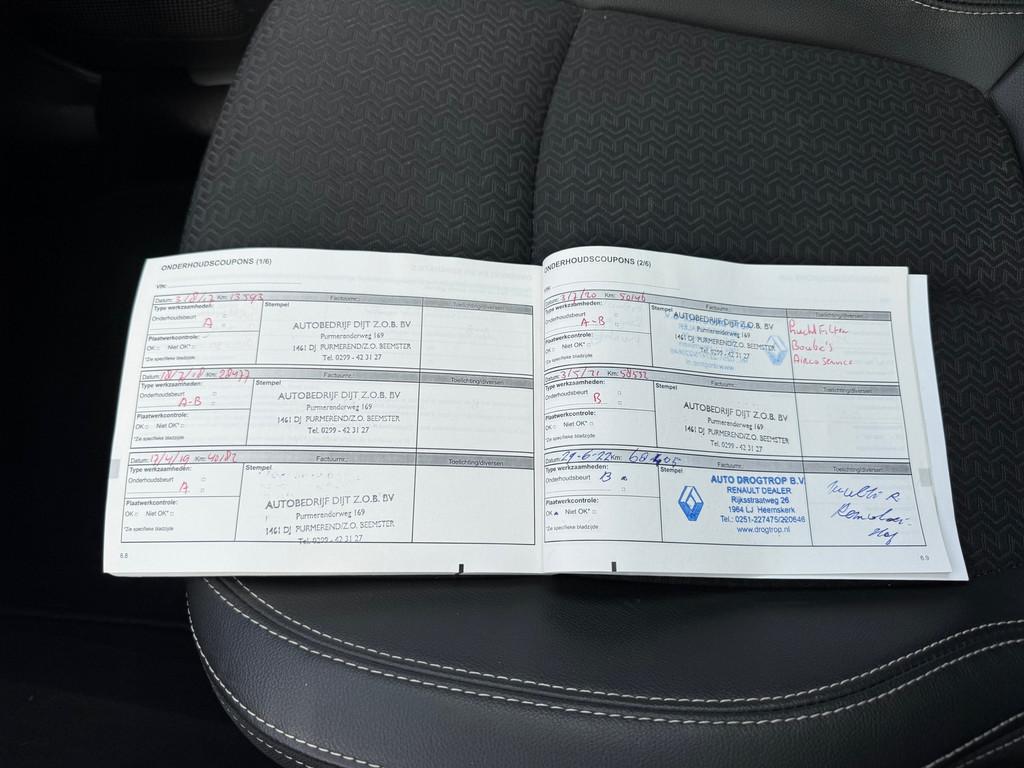 ONDERHOUDSCOUPONS (1/6)
VIN:
Datum: 3/8/17 Km: 13593 Factuurnr.: Toelichting/diversen
Type werkzaamheden: Stempel
Onderhoudsbeurt
A
Plaatwerkcontrole:
OK Niet OK*
*Zie specifieke bladzijde
AUTOBEDRIJF DIJT Z.O.B. BV
Purmerenderweg 169
1461 DJ PURMEREND/Z.O. BEEMSTER
Tel. 0299 - 42 31 27
Datum: 18/7/18 Km: 28477 Factuurnr.: Toelichting/diversen
Type werkzaamheden: Stempel
Onderhoudsbeurt
A-B
Plaatwerkcontrole:
OK Niet OK*
*Zie specifieke bladzijde
AUTOBEDRIJF DIJT Z.O.B. BV
Purmerenderweg 169
1461 DJ PURMEREND/Z.O. BEEMSTER
Tel. 0299 - 42 31 27
Datum: 17/4/19 Km: 40182 Factuurnr.: Toelichting/diversen
Type werkzaamheden: Stempel
Onderhoudsbeurt
A
Plaatwerkcontrole:
OK Niet OK*
*Zie specifieke bladzijde
AUTOBEDRIJF DIJT Z.O.B. BV
Purmerenderweg 169
1461 DJ PURMEREND/Z.O. BEEMSTER
Tel. 0299 - 42 31 27
6.8
ONDERHOUDSCOUPONS (2/6)
VIN:
Datum: 3/7/20 Km: 50146 Factuurnr.: Toelichting/diversen
Type werkzaamheden: Stempel
Onderhoudsbeurt
A-B
Plaatwerkcontrole:
OK Niet OK*
*Zie specifieke bladzijde
AUTOBEDRIJF DIJT Z.O.B. BV
Purmerenderweg 169
1461 DJ PURMEREND/Z.O. BEEMSTER
Tel. 0299 - 42 31 27
Lucht Filter
Bougie's
Airco service
Datum: 3/5/21 Km: 58532 Factuurnr.: Toelichting/diversen
Type werkzaamheden: Stempel
Onderhoudsbeurt
B
Plaatwerkcontrole:
OK Niet OK*
*Zie specifieke bladzijde
AUTOBEDRIJF DIJT Z.O.B. BV
Purmerenderweg 169
1461 DJ PURMEREND/Z.O. BEEMSTER
Tel. 0299 - 42 31 27
Datum: 29-6-22 Km: Factuurnr.: Toelichting/diversen
Type werkzaamheden: Stempel
Onderhoudsbeurt B
Plaatwerkcontrole:
OK Niet OK*
*Zie specifieke bladzijde
AUTO DROGTROP B.V.
RENAULT DEALER
Rijksstraatweg 26
1964 LJ Heemskerk
Tel.: 0251-227475/220646
www.drogtrop.nl
6.9